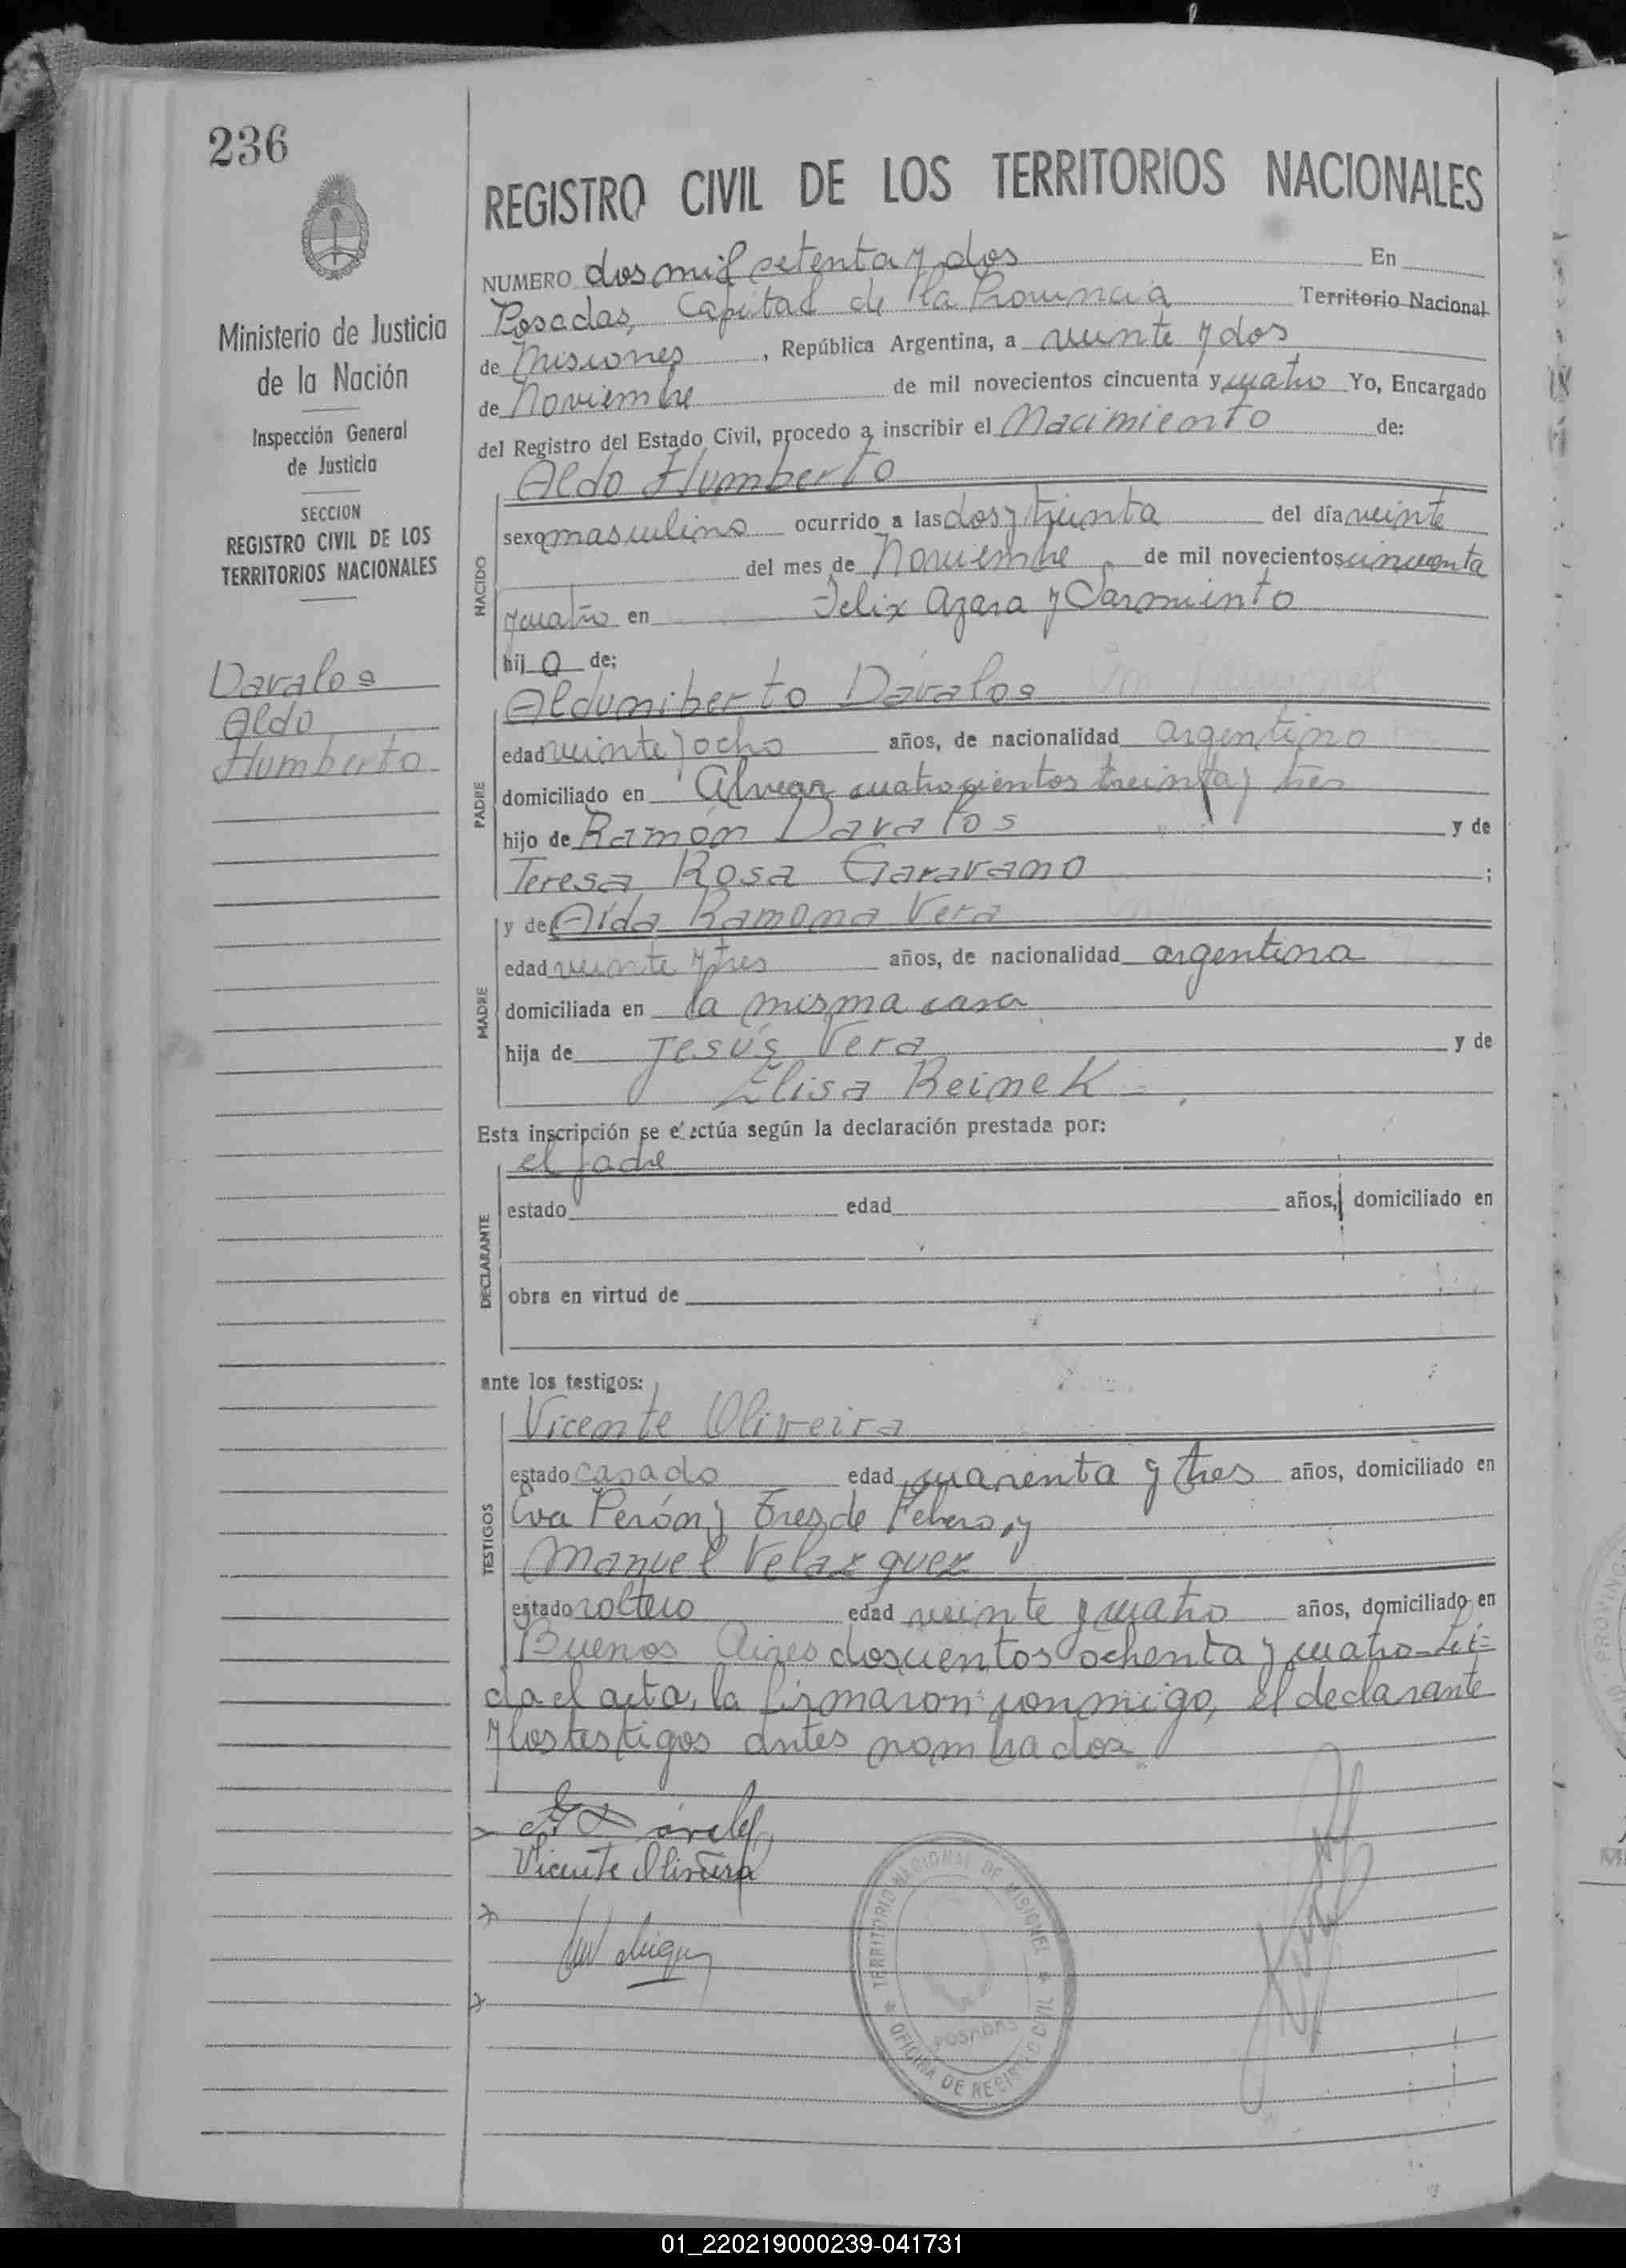 236
Ministerio de Justicia
de la Nación
Inspección General
de Justicia
SECCION
REGISTRO CIVIL DE LOS
TERRITORIOS NACIONALES
Davalos
Aldo
Humberto
REGISTRO CIVIL DE LOS TERRITORIOS NACIONALES
NUMERO dos mil setenta y dos En
Posadas, Capital de la Provincia Territorio Nacional
de Misiones, República Argentina, a veinte y dos
de Noviembre de mil novecientos cincuenta y cuatro Yo, Encargado
del Registro del Estado Civil, procedo a inscribir el Nacimiento de:
Aldo Humberto
NACIDO
sexo masculino ocurrido a las dos y treinta del día veinte
del mes de Noviembre de mil novecientos cincuenta
y cuatro en Felix Azara y Sarmiento
hijo de:
Aldumiberto Dávalos
PADRE
edad veinte y ocho años, de nacionalidad argentino
domiciliado en Alvear cuatrocientos treinta y tres
hijo de Ramón Davalos y de
Teresa Rosa Garavano ;
y de Aída Ramona Vera
MADRE
edad veinte y tres años, de nacionalidad argentina
domiciliada en la misma casa
hija de Jesús Vera y de
Elisa Reinek
Esta inscripción se efectúa según la declaración prestada por:
el padre
DECLARANTE
estado edad años, domiciliado en
obra en virtud de
ante los testigos:
Vicente Oliveira
TESTIGOS
estado casado edad cuarenta y tres años, domiciliado en
Eva Perón y Tres de Febrero, y
Manuel Velazquez
estado soltero edad veinte y cuatro años, domiciliado en
Buenos Aires doscientos ochenta y cuatro - Leí=
da el acta, la firmaron conmigo, el declarante
y los testigos antes nombrados
Vicente Oliveira
TERRITORIO NACIONAL DE MISIONES
POSADAS
OFICINA DE REGISTRO CIVIL
01_220219000239-041731